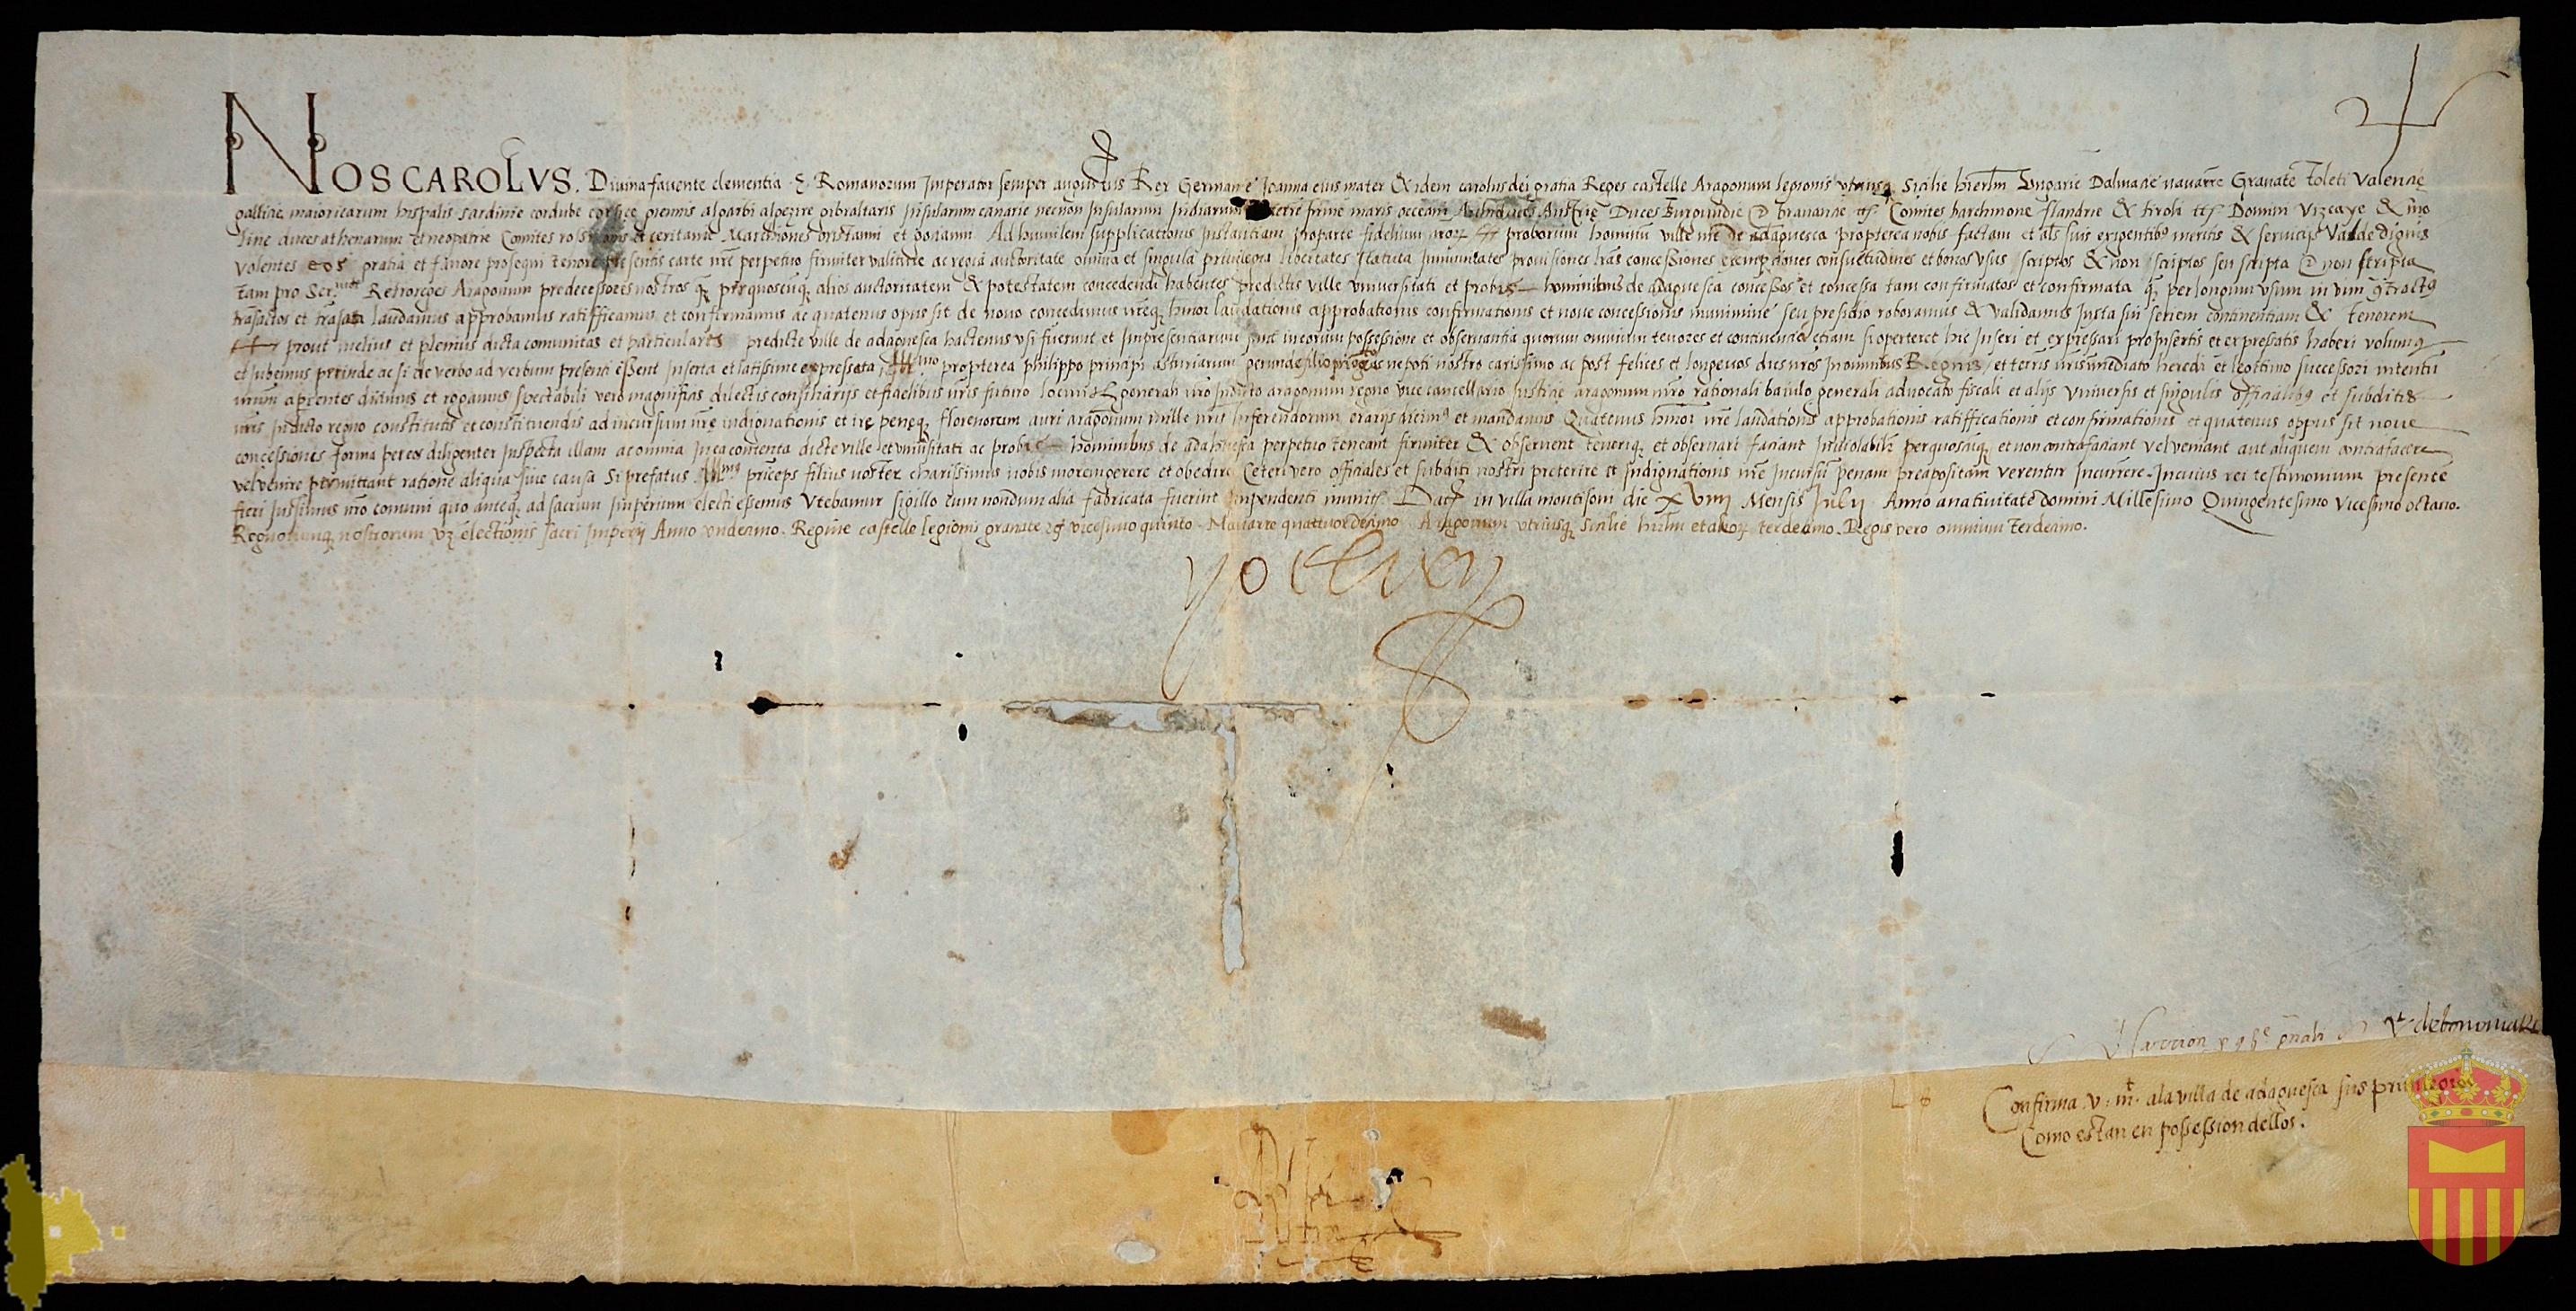 NOS CAROLVS. Diuina favente clementia E. Romanorum Imperator semper augustus Rex Germanie Joanna eius mater & idem carolus dei gratia Reges castelle Aragonum legionis utriusq Sicilie hierlm Ungarie Dalmacie navarre Granate toleti Valencie
gallicie maioricarum hispalis sardinie cordube corsice giennis algarbi algezire gibraltaris Insularum canarie necnon Insularum Indiarum terre firme maris occeani Archiduces Austrie Duces Burgundie & bravancie ctc Comites barchinone flandrie & tiroli ctc Domini Vizcaye & mo
line duces athenarum et neopatrie Comites rossilionis et ceritanie Marchiones oristanni et gociani Ad humilem supplicationis Instantiam pro parte fidelium nror proborum hominum ville nre de adaguesca propterea nobis factam et als suis exigentibus meritis & seruicijs Valde dignis
volentes eos gratia et favore prosequi tenore presentis carte nre perpetuo firmiter valiture ac regia auctoritate omnia et singula privilegia libertates statuta Immunitates provisiones lras concessiones exemptiones consuetudines et bonos usus scriptos & non scriptos seu scripta & non scripta
tam pro Ser.mos Retroreges Aragonum predecessores nostros q per quoscuq alios auctoritatem & potestatem concedendi habentes predictis ville universitati et probis hominibus de adaguesca concessos et concessa tam confirmatos et confirmata q per longum usum in vim
laudamus approbamus ratifficamus et confirmamus ac quatenus opus sit de novo concedimus nreq hmoi laudationis approbationis confirmationis et nove concessionis munimine seu presidio roboramus & validamus Iuxta sui seriem continentiam & tenorem
prout melius et plenius dicta comunitas et particulares predicte ville de adaguesca hactenus usi fuerunt et Impresentiarum sunt in eorum possessione et observantia quorum omnium tenores et continencie etiam si operteret hic Inseri et expressari pro Insertis et expressatis haberi volumus
et Iubemus perinde ac si de verbo ad verbum presenti essent Inserta et latissime expressata, Ill.mo propterea philippo principi asturiarum gerunde filio primogto ac nepoti nostro carissimo ac post felices et longevos dies nros In omnibus Regnis et terris nris Immediato heredi et legitimo successori intentu
nrum aperientes dicimus et rogamus spectabili vero magnificis dilectis consiliarijs et fidelibus nris futuro locumt. generali nro In dicto aragonum regno vicecancellario Iusticie aragonum nro rationali baiulo generali advocato fiscali et alijs Universis et singulis officialibus et subditis
nris In dicto regno constitutis et constituendis ad incursum nre indignationis et ire peneq florenorum auri aragonum mille nris Inferendorum erarijs dicimus et mandamus Quatenus hmoi nre laudationis approbationis ratifficationis et confirmationis et quatenus oppus sit nove
concessionis forma per eos diligenter Inspecta illam ac omnia In ea contenta dicte ville et universitati ac probis hominibus de adahuesca perpetuo teneant firmiter & observent tenerique et observari faciant Inviolabili per quoscuq et non contrafaciant vel veniant aut aliquem contrafacere
vel venire permittant ratione aliqua sive causa Si prefatus Ill.mus princeps filius noster charissimus nobis morem gerere et obedire Ceteri vero officiales et subditi nostri preterire et Indignationis nre Incursum penam preapositam verentur Incurrere. In cuius rei testimonium presente
fieri Iussimus nro comuni quo anteq ad sacrum Imperium electi essemus Utebamur sigillo cum nondum alia fabricata fuerint Impendenti munit. Dat in villa montisoni die XVIIII Mensis Iulij Anno a nativitate domini Millesimo Quingentesimo Vicesimo octavo.
Regnorumq nostrorum vz electionis sacri Imperij Anno undecimo. Regine castelle legionis granate ec vicesimo quinto. Navarre quattuordecimo. Aragonum utriusq Sicilie hrlm et alior terdecimo. Regis vero omnium terdecimo.
yo el rey
Confirma v. m.t a la villa de adaguesca sus privilegios
Como estan en possession dellos.